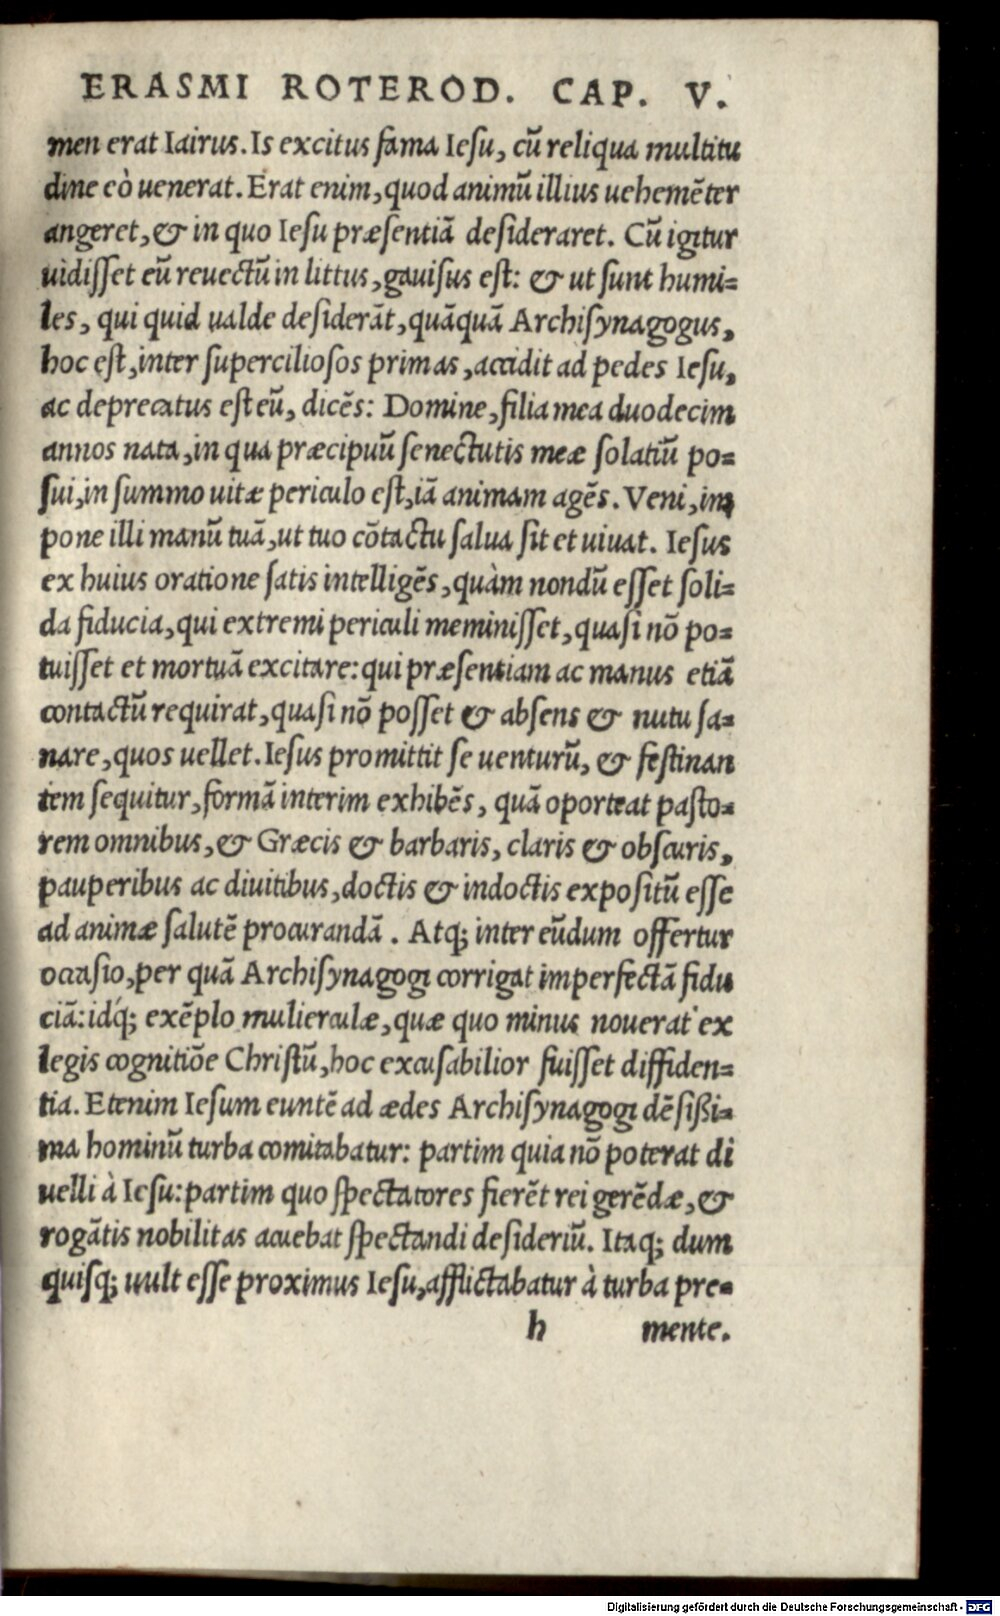 ERASMI ROTEROD. CAP. V.
men erat Iairus. Is excitus fama Iesu, cũ reliqua multitu
dine eò uenerat. Erat enim, quod animũ illius uehemẽter
angeret, & in quo Iesu præsentiã desideraret. Cũ igitur
uidisset eũ reuectũ in littus, gauisus est: & ut sunt humi=
les, qui quid ualde desiderãt, quãquã Archisynagogus,
hoc est, inter superciliosos primas, accidit ad pedes Iesu,
ac deprecatus est eũ, dicẽs: Domine, filia mea duodecim
annos nata, in qua præcipuũ senectutis meæ solatiũ po=
sui, in summo uitæ periculo est, iã animam agẽs. Veni, im
pone illi manũ tuã, ut tuo cõtactu salua sit et uiuat. Iesus
ex huius oratione satis intelligẽs, quàm nondũ esset soli=
da fiducia, qui extremi periculi meminisset, quasi nõ po=
tuisset et mortuã excitare: qui præsentiam ac manus etiã
contactũ requirat, quasi nõ posset & absens & nutu sa=
nare, quos uellet. Iesus promittit se uenturũ, & festinan
tem sequitur, formã interim exhibẽs, quã oporteat pasto=
rem omnibus, & Græcis & barbaris, claris & obscuris,
pauperibus ac diuitibus, doctis & indoctis expositũ esse
ad animæ salutẽ procurandã. Atq; inter eũdum offertur
occasio, per quã Archisynagogi corrigat imperfectã fidu
ciã: idq́; exẽplo mulierculæ, quæ quo minus nouerat ex
legis cognitiõe Christũ, hoc excusabilior fuisset diffiden=
tia. Etenim Iesum euntẽ ad ædes Archisynagogi dẽsißi=
ma hominũ turba comitabatur: partim quia nõ poterat di
uelli à Iesu: partim quo spectatores fierẽt rei gerẽdæ, &
rogãtis nobilitas acuebat spectandi desideriũ. Itaq; dum
quisq; uult esse proximus Iesu, afflictabatur à turba pre=
h mente.
Digitalisierung gefördert durch die Deutsche Forschungsgemeinschaft - DFG